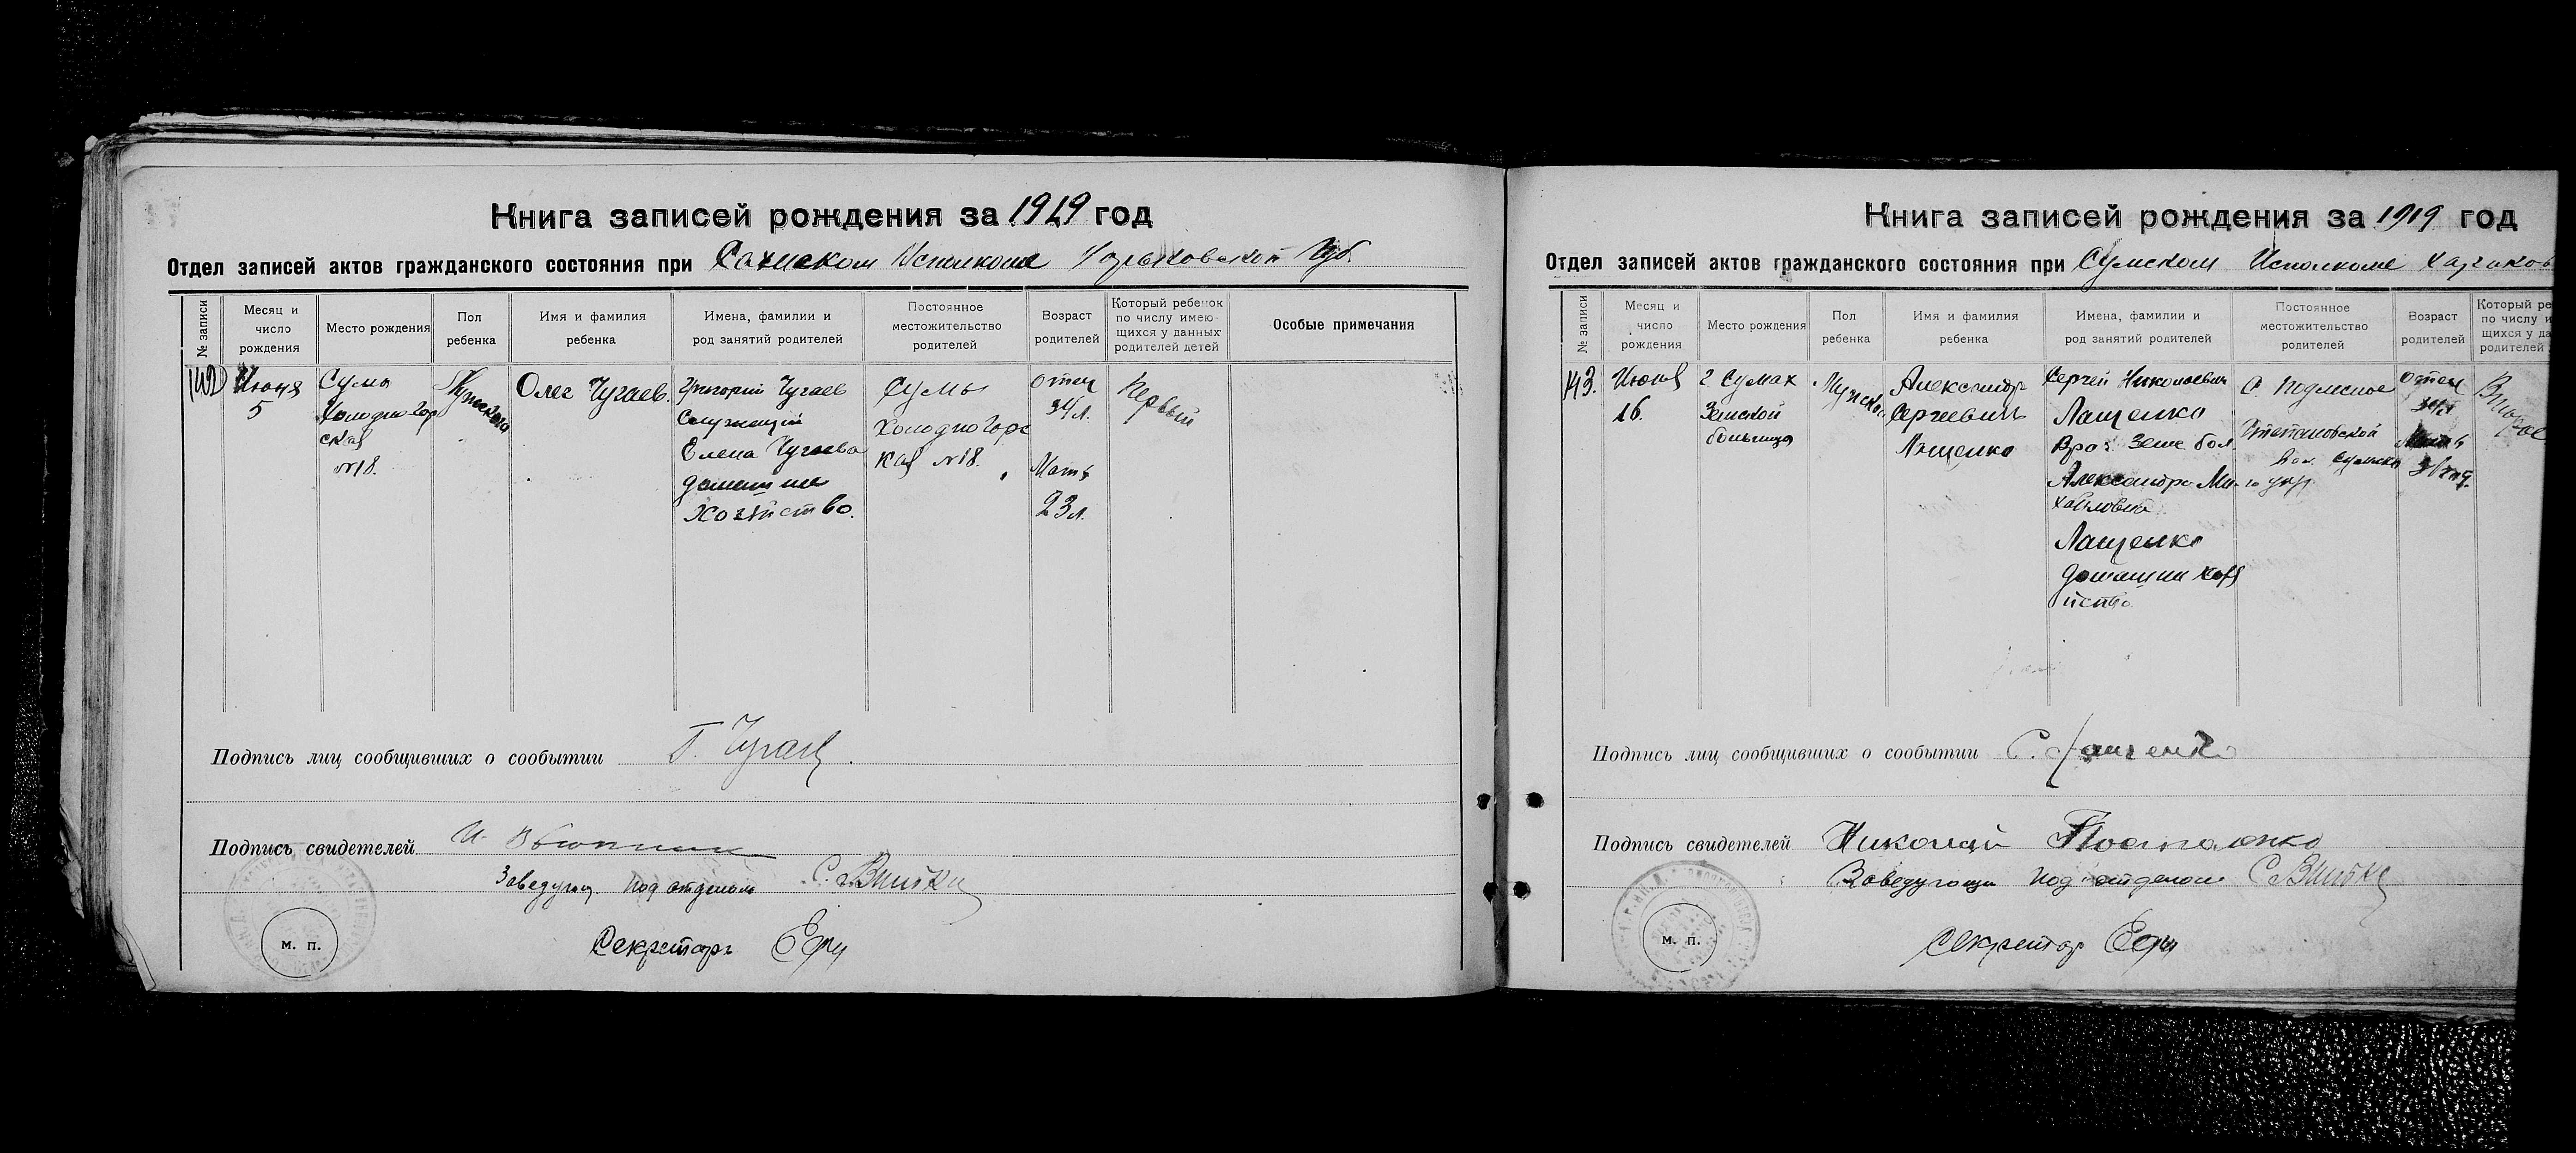 Книга записей рождения за 1919 год
Отдел записей актов гражданского состояния при Исполкоме Харьковской Губ.
№ записи
Месяц и число рождения
Место рождения
Пол ребенка
Имя и фамилия ребенка
Имена, фамилии и род занятий родителей
Постоянное местожительство родителей
Возраст родителей
Который ребенок по числу имеющихся у данных родителей детей
Особые примечания
142
Июня
5
Сумы
Холодногор
ская
№18.
Мужской
Олег Чугаев.
Григорий Чугаев
Служащий
Елена Чугаева
домашнее
хозяйство.
Сумы
Холодногорс
кая №18.
отец
34 л.
Мать
23 л.
Первый
Подпись лиц сообщивших о сообытии Г. Чугаев.
Подпись свидетелей И.
Заведующ. подотделом С.
Секретарь
м. п.
Книга записей рождения за 1919 год
Отдел записей актов гражданского состояния при Сумском Исполкоме Харьков
№ записи
Месяц и число рождения
Место рождения
Пол ребенка
Имя и фамилия ребенка
Имена, фамилии и род занятий родителей
Постоянное местожительство родителей
Возраст родителей
Который ре
по числу и
щихся у да
родителей
143.
Июня
16.
г. Сумах
Земской
больница
Мужской
Александр
Сергеевич
Лащенко
Сергей Николаевич
Лащенко
Врач Земс бол.
Александра Ми-
хайловна
Лащенко
домашнее хозя
йство
С. Подлесное
Степановской
Вол. Сумско
го уезд.
Отец
Мать
Подпись лиц сообщивших о сообытии С. Лащенко
Подпись свидетелей Николай
Заведующи подотделом С
Секретар
м. п.